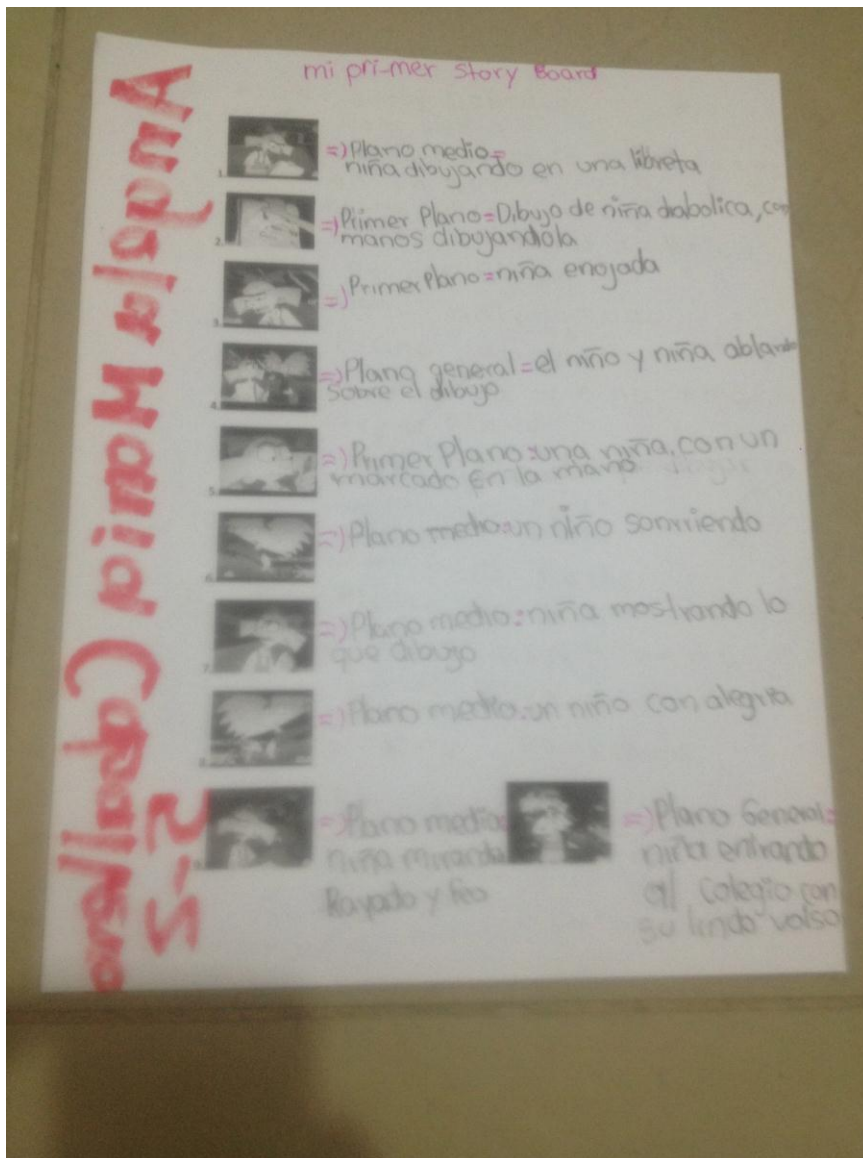 mi pri-mer story Board
1. =) Plano medio=
niña dibujando en una libreta
2. =) Primer Plano=Dibujo de niña diabolica, con
manos dibujandola
3. =) Primer Plano=niña enojada
4. =) Plano general=el niño y niña ablando
sobre el dibujo
5. =) Primer Plano:una niña, con un
marcado en la mano
6. =) Plano medio:un niño sonriendo
7. =) Plano medio:niña mostrando lo
que dibujo
8. =) Plano medio:un niño con alegria
=) Plano medio:
niña mirando
Rayado y feo
=) Plano General=
niña entrando
al colegio con
su lindo volso
Maria
5-2